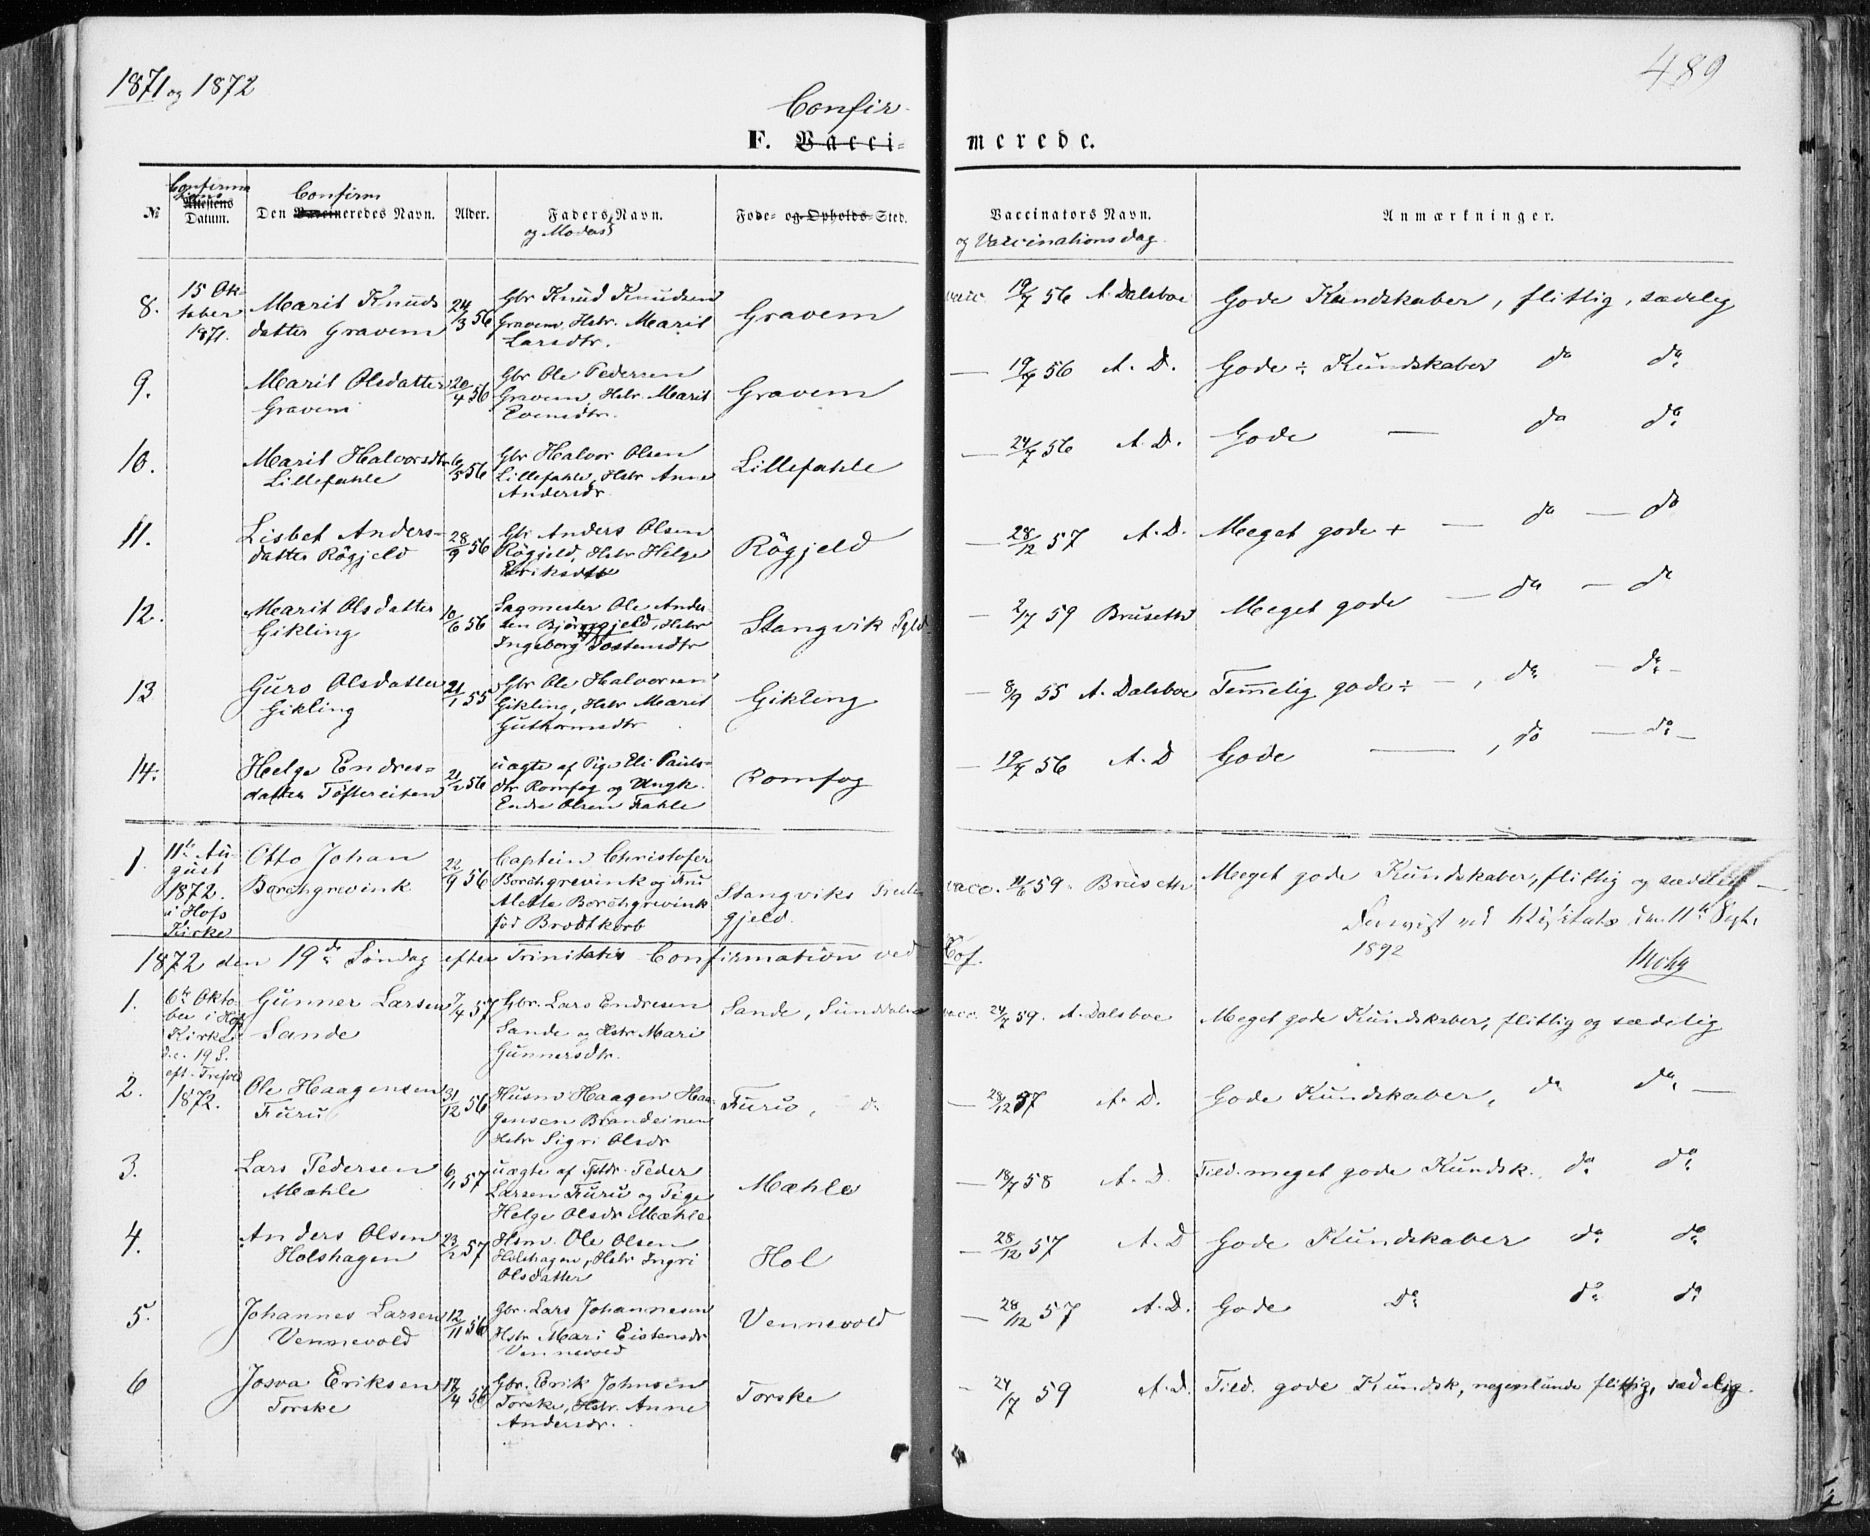 1871 og 1872
489
Confir-
F. Vacci- merede.
Confirma
tions
Confirm
№ Attestens Datum. Den Vaccineredes Navn. Alder. Faders Navn. Føde- og Opholds-Sted. Vaccinators Navn. Anmærkninger.
og Moders
og Vaccinationsdag.
8. 15 Ok- Marit Knuds 24/3 56 Gbr Knud Knudsen Gravem vacc. 19/7 56 A. Dalsboe Gode Kundskaber, flittig, sædelig
tober datter Gravem Gravem, Hstr. Marit
1871. Larsdtr.
9. Marit Olsdatter 20/4 56 Gbr Ole Pedersen Gravem — 19/7 56 A. D. Gode ÷ Kundskaber do do
Gravem Gravem, Hstr. Marit
Evensdtr.
10. Marit Halvorsdtr 6/5 56 Gbr Halvor Olsen Lillefahle — 24/7 56 A. D. Gode — do do
Lillefahle Lillefahle, Hstr Anne
Andersdr.
11. Lisbet Anders- 28/9 56 Gbr Anders Olsen Røgjeld — 28/12 57 A. D. Meget gode + — do — do
datter Røgjeld Røgjeld, Hstr Helge
Eriksdtr
12. Marit Olsdatter 10/6 56 Sagmester Ole Ander- Stangvik Pgld. — 2/7 59 Bruseth Meget gode — do — do
Gikling sen Bjørnsgjeld, Hstr
Ingeborg Tostensdtr
13 Guro Olsdatter 21/1 55 Gbr Ole Halvorsen Gikling — 8/9 55 A. Dalsboe Temmelig gode ÷ —, do — do —
Gikling Gikling, Hstr Marit
Guthormsdtr
14. Helge Endres- 21/2 56 uægte af Pige Eli Pauls- Romfog — 19/7 56 A. D Gode —, do — do —
datter Toftereiten dtr Romfog og Ungk.
Endre Olsen Fahle
1. 11te Au- Otto Johan 22/9 56 Captein Christofer Stangviks vacc. 11/6 59. Bruseth Meget gode Kundskaber, flittig og sædelig —
gust Borchgrevink Borchgrevink og Fru gjeld.
1872. Alette Borchgrevink
i Hofs født Brodtkorb
Kirke
11te Sept.
1892
1872 den 19de Søndag efter Trinitatis Confirmation ved Hof.
1. 6te Okto- Gunner Larsen 7/4 57 Gbr. Lars Endresen Sande, Sunddalen vacc. 24/7 59. A. Dalsboe Meget gode Kundskaber, flittig og sædelig
ber i Hofs Sande Sande og Hstr Mari
Kirke Gunnersdtr.
d.e. 19 S.
eft.
1872.
2. Ole Haagensen 31/12 56 Husm Haagen Haa- Furu, do — 28/12 57 A. D. Gode Kundskaber, do do —
Furu gensen Brandeinen
Hstr Sigri Olsdr
3. Lars Pedersen 6/1 57 uægte af Peder Mæhle — 18/7 58 A. D. Tild. meget gode Kundsk. do do
Mæhle Larsen Furu og Pige
Helge Olsdr Mæhle
4. Anders Olsen 23/2 57 Hsm. Ole Olsen Hol — 28/12 57 A. D Gode Kundskaber do do
Holshagen Holshagen, Hstr Ingri
Olsdatter
5. Johannes Larsen 12/11 56 Gbr. Lars Johannesen Vennevold — 28/12 57 A. D. Gode Do do do
Vennevold Hstr Mari Eistensdr
Vennevold
6 Josva Eriksen 17/4 56 Gbr. Erik Johnsen Torske — 24/7 59 A. D. Tild. gode Kundsk, nogenlunde flittig, sædelig.
Torske Torske, Hstr. Anne
Andersdr.